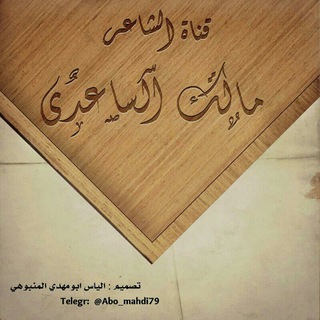 قناة الشاعر
مالك الساعدي
تصميم : الياس ابومهدي المنبوهي
Telegr: @Abo_mahdi79